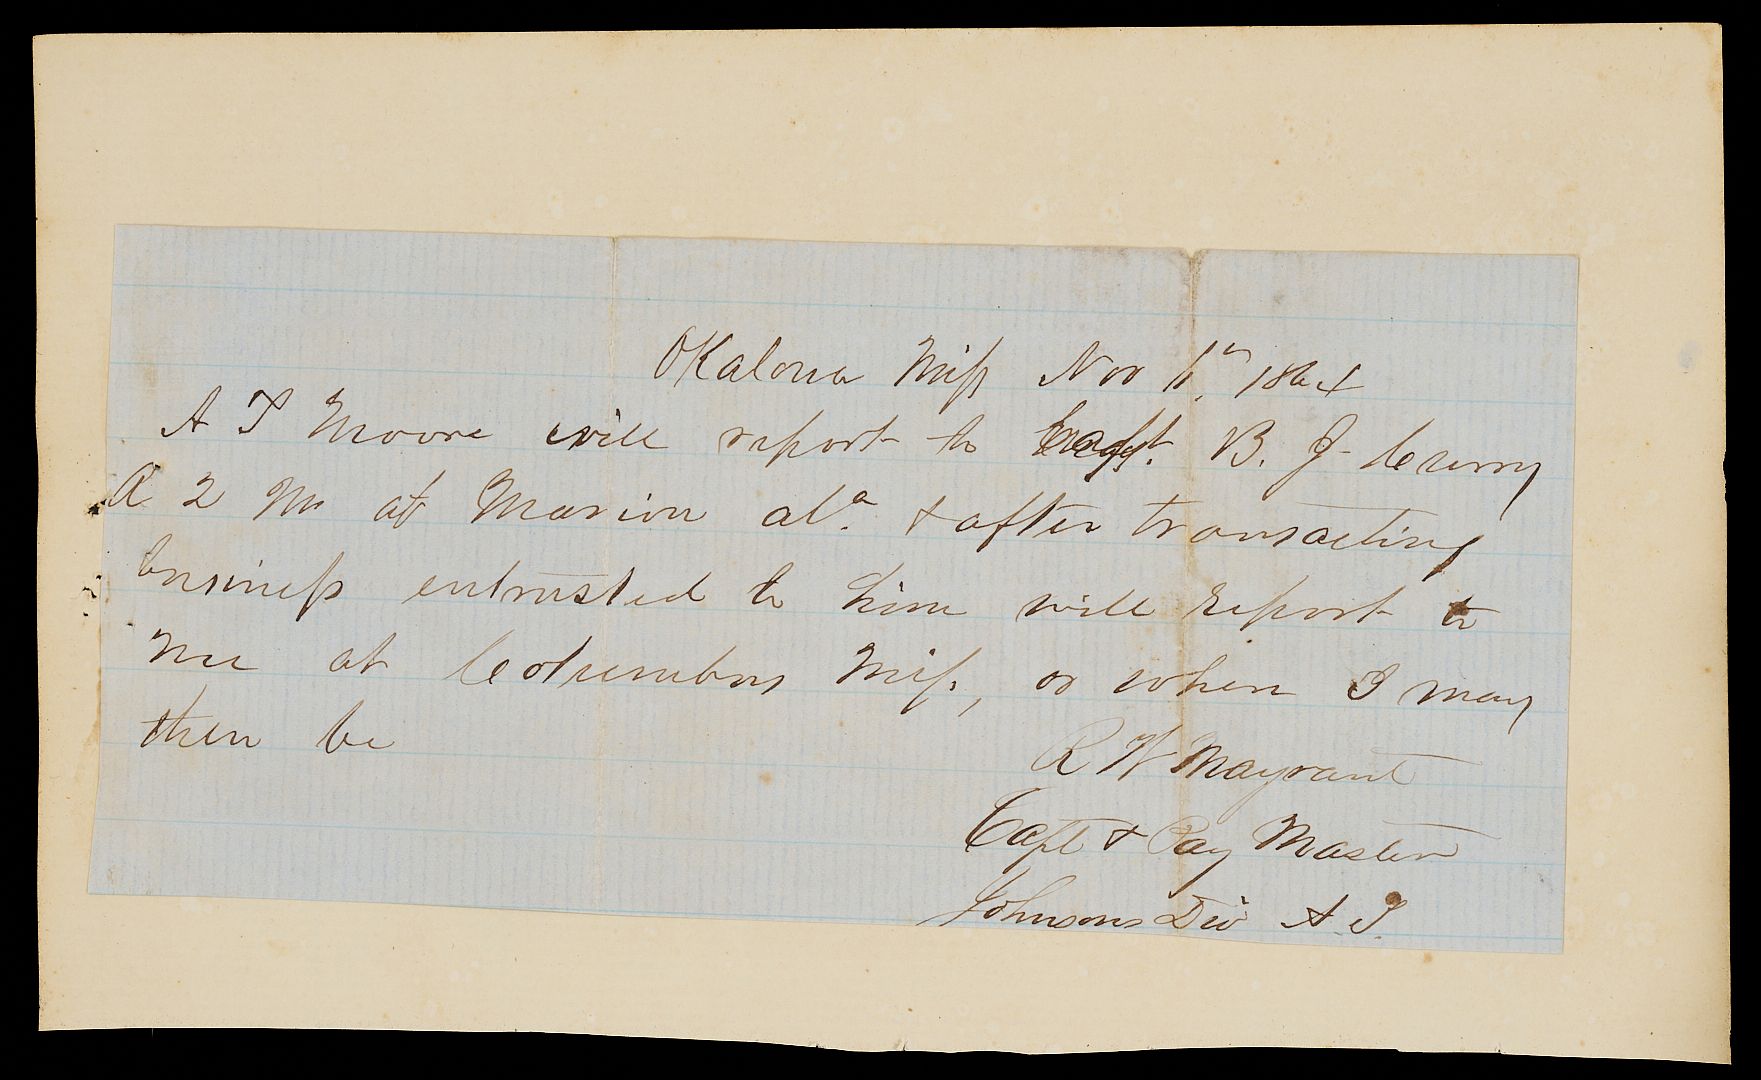 Okalona Miss Nov 1st 1864
A T Moore will report to Capt. B. J. Curry
A Q M at Marion Ala. & after transacting
business entrusted to him will report to
me at Columbus Miss, or when I may
then be
R W Mayrant
Capt & Pay Master
Johnsons Div A. T.